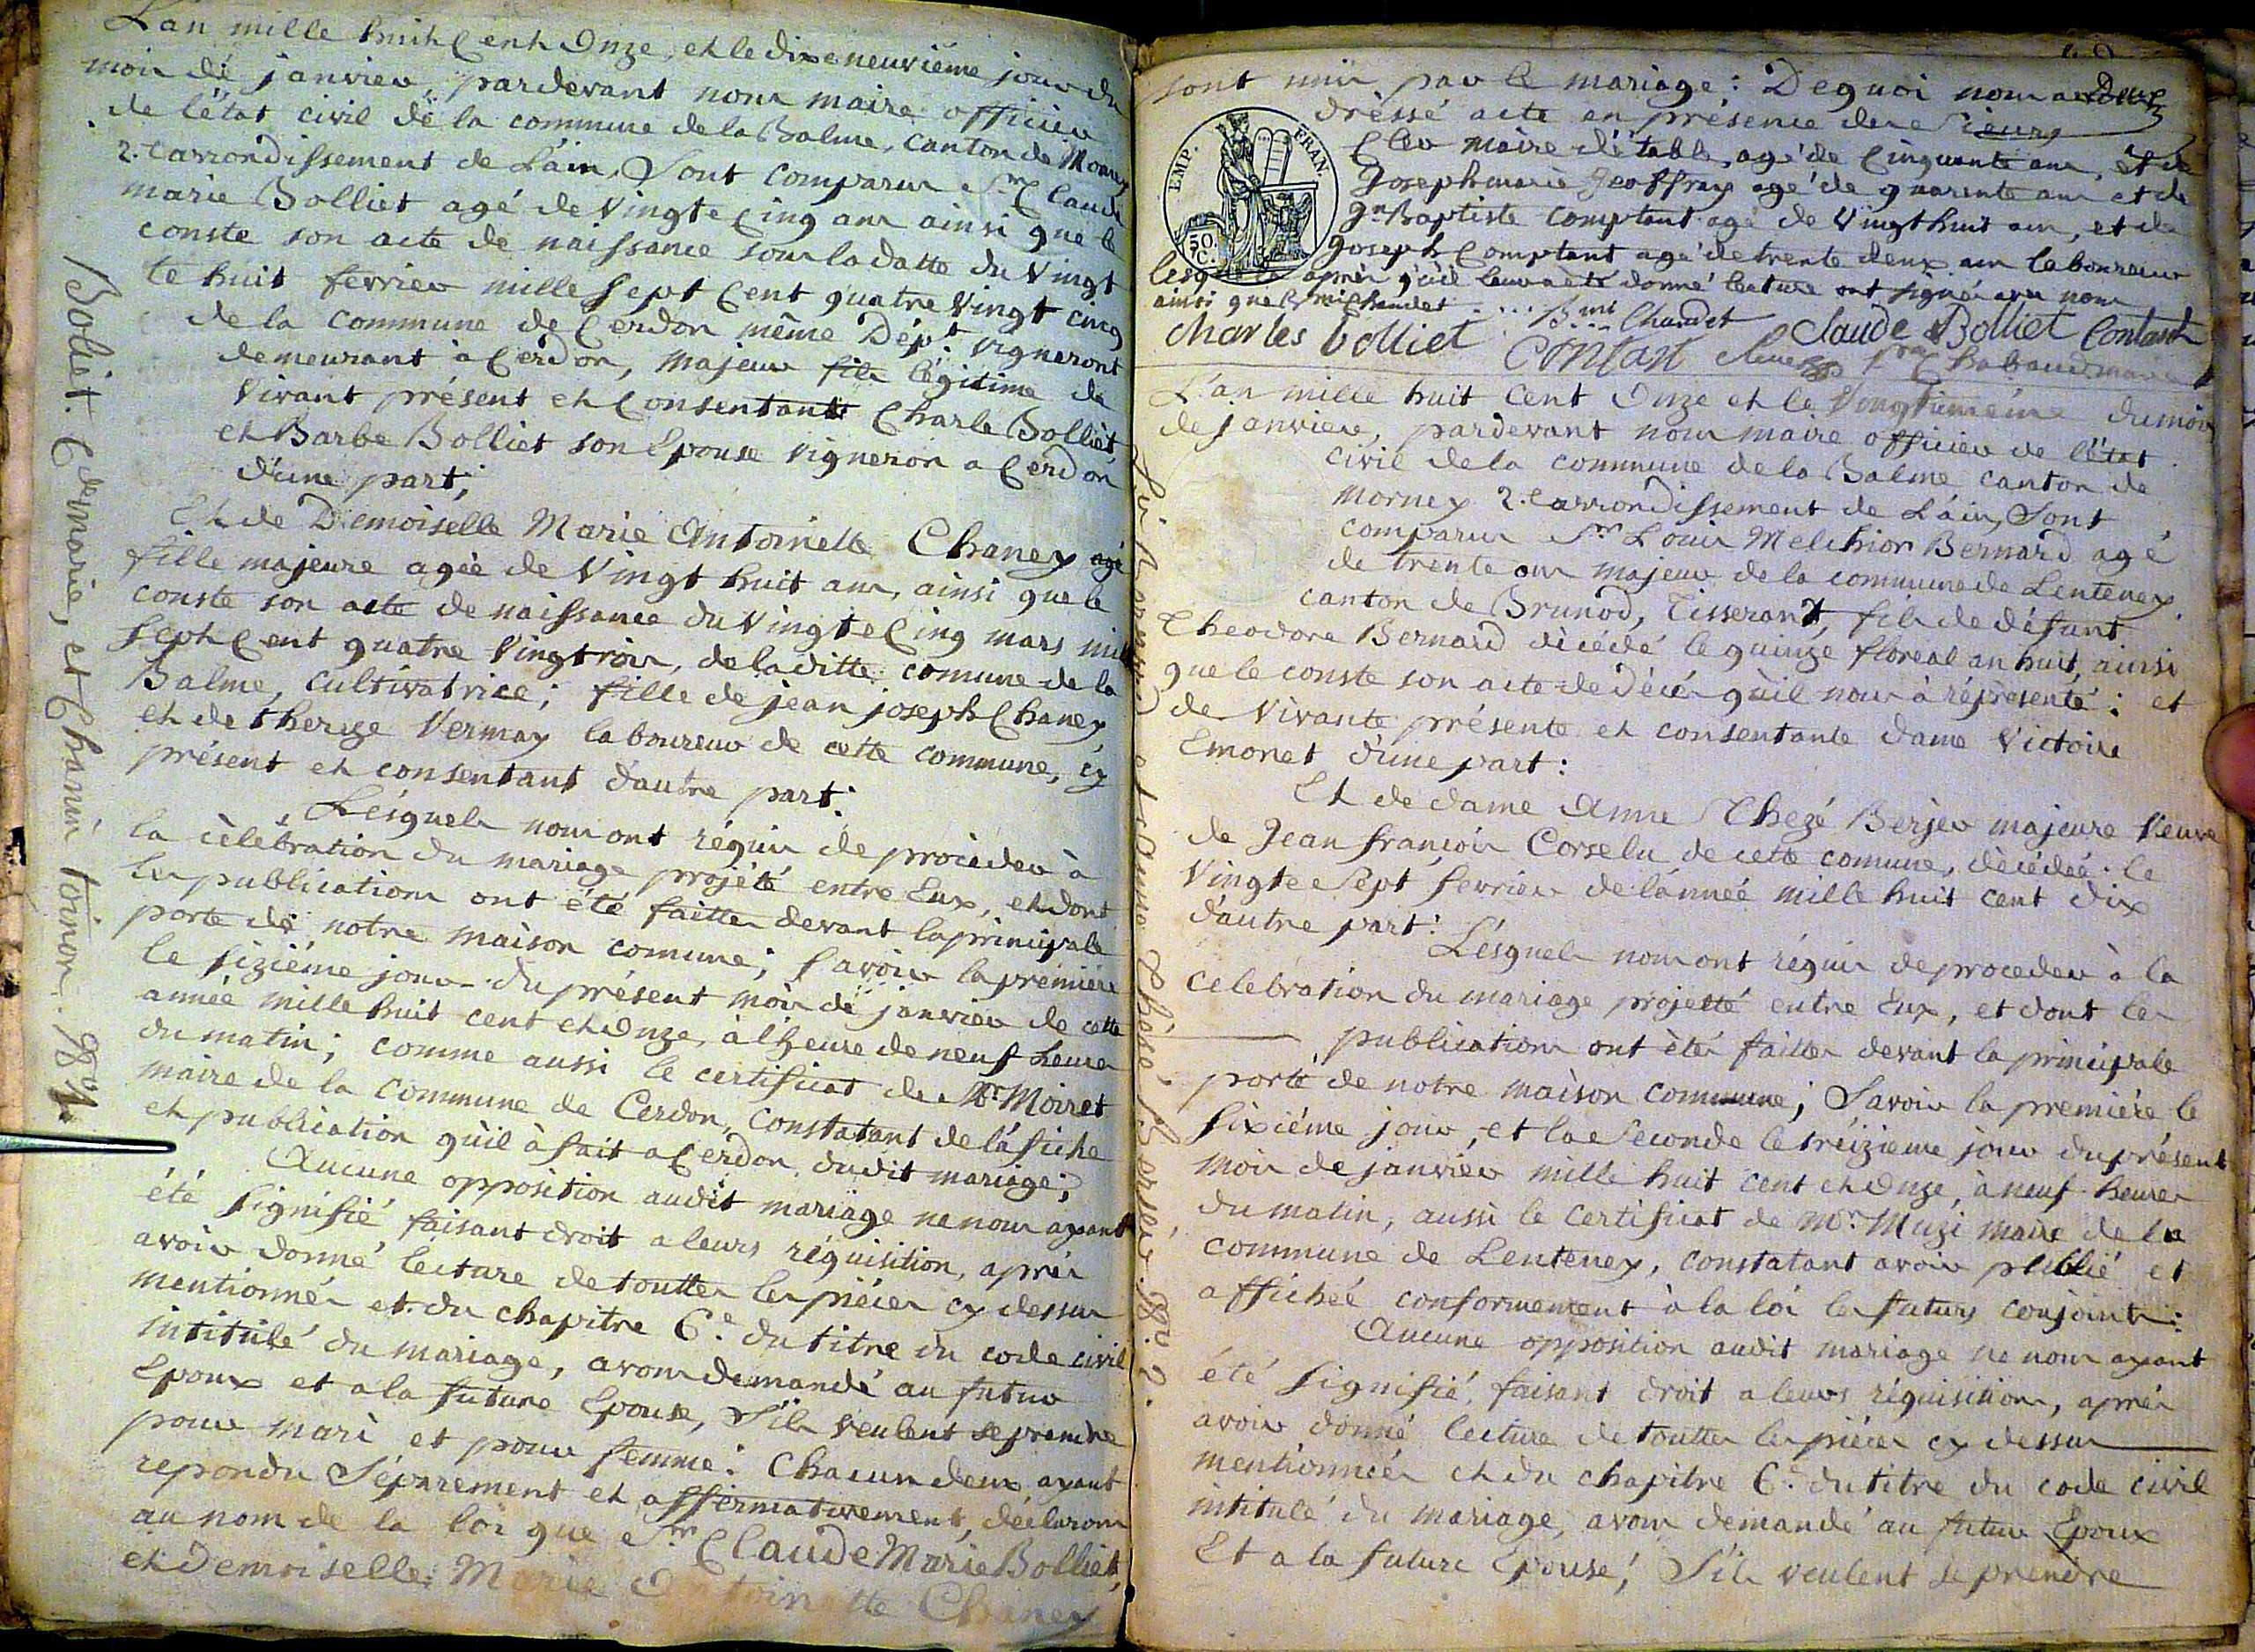 L'an mille huit Cent Onze, et le dixeneuviéme jour du
mois de janvier, pardevant nous maire officier
de l'état civil de la commune de la Balme, Canton de Mornay
2.e arrondissement de L'ain, Sont Comparus Sr. Claude
marie Bolliet agé de Vingte Cinq ans ainsi que le
conste son acte de naissance sous la datte du Vingt
te huit fevrier mille sept Cent quatre Vingt cinq
de la commune de Cerdon même Dépt. Vigneront
demeurant à Cerdon, majeur fils légitime de
Vivant présent et Consentant Charle Bolliet
et Barbe Bolliet son Epouse Vigneron a Cerdon
d'une part;
Et de Demoiselle Marie Antoinette Chaney agé
fille majeure ageé de Vingt huit ans, ainsi que le
conste son acte de naissance du Vingte Cinq mars mil
Sept Cent quatre Vingtrois, de laditte comune de la
Balme, Cultivatrice; fille de jean joseph Chaney
et de therese Vermay laboureur de cette commune, cy
présent et consentant d'autre part.
Lésquels nous ont réquis de procèder à
la cèlébration du mariage projété entre Eux, et dont
les publications ont été faittes devant la principale
porte de notre maison comune; Savoir la premiére
le sizième jour du présent mois de janvier de cette
année mille huit cent et Onze, à l'heure de neuf heures
du matin; comme aussi le certificat de Mr. Moiret
maire de la Commune de Cerdon, Constatant de l'afiche
et publication qu'il à fait a Cerdon, dudit mariage;
Aucune opposition audit mariage ne nous ayant
été Signifié, faisant droit a leurs réquisition, aprés
avoir donné lecture de touttes les piéces cy dessus
mentionnés et du chapitre 6.e du titre du code civil
intitulé du mariage, avons demandé au futur
Epoux et a la future Epouse, S'ils veulent se prendre
pour mari et pour femme: Chacun deux ayant
repondu Séparement et affirmativement, déclarons
au nom de la loi que Sr. Claude Marie Bolliet,
et Demoiselle Marie Antoinette Chaney
Boliet. Cde marie, et Chanin toinon. No. 1.
sont unis par le mariage: Dequoi nous avons
dréssé acte en présence des Sieurs
Cler maire détable, agé de Cinquante ans, et de
Joseph marie Geoffray agé de quarante ans et de
Jn. Baptiste Comptant agé de Vingt huit ans, et de
joseph Comptant agé de trente deux ans laboureur
lesquels aprés qu'il leur a été donné lecture ont signés avec nous
ainsi que
EMP. FRAN.
50. C.
charles bolliet Chandet Claude Bolliet Contant
Contant
L'an mille huit Cent Onze et le Vingtiemeine du mois
de janvier, pardevant nous maire officier de l'état
civil de la commune de la Balme canton de
Morney 2.e arrondissement de L'ain, Sont
comparus Sr. Louis Melchior Bernard agé
de trente ans majeur de la commune de Lenteney
canton de Brunod, Tisserant, fils de défunt
Theodore Bernard dècédé le quinze floreal an huit, ainsi
que le conste son acte de décés qu'il nous à réprésenté: et
de Vivante présente et consentante dame Victoire
Emonet d'une part:
Et de dame Anne Thezé Berjer majeure Veuve
de Jean francois Corselu de cette comune, dècédeé le
Vingte Sept fevrier de l'anneé mille huit cent dix
d'autre part:
Lésquels nous ont réquis de proceder à la
celebration du mariage projetté entre Eux, et dont les
publications ont été faittes devant la principale
porte de notre maison commune; Savoir la premiére le
sixiéme jour, et la Seconde le treizieme jour du présent
mois de janvier mille huit cent et Onze, à neuf heures
du matin, aussi le certificat de Mr. Muzi maire de la
commune de Lenteney, constatant avoir publié et
affichéé conformement à la loi les futurs conjoints:
Aucune opposition audit mariage ne nous ayant
été Signifié, faisant droit a leurs réquisition, aprés
avoir donné lecture de touttes les piéces cy dessus
mentionnéés et du chapitre 6.e du titre du code civil
intitulé du mariage, avons demandé au futur Epoux
Et a la future Epouse, S'ils veulent se prendre
et Anne Thésé Berjer. No. 2.